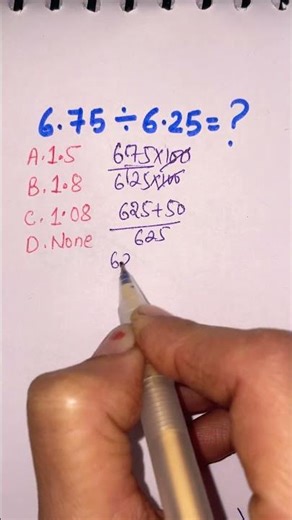 6.75÷6.25=?
A. 1.5
B. 1.8
C. 1.08
D. None
6.75×100
6.25×100
625+50
625
62